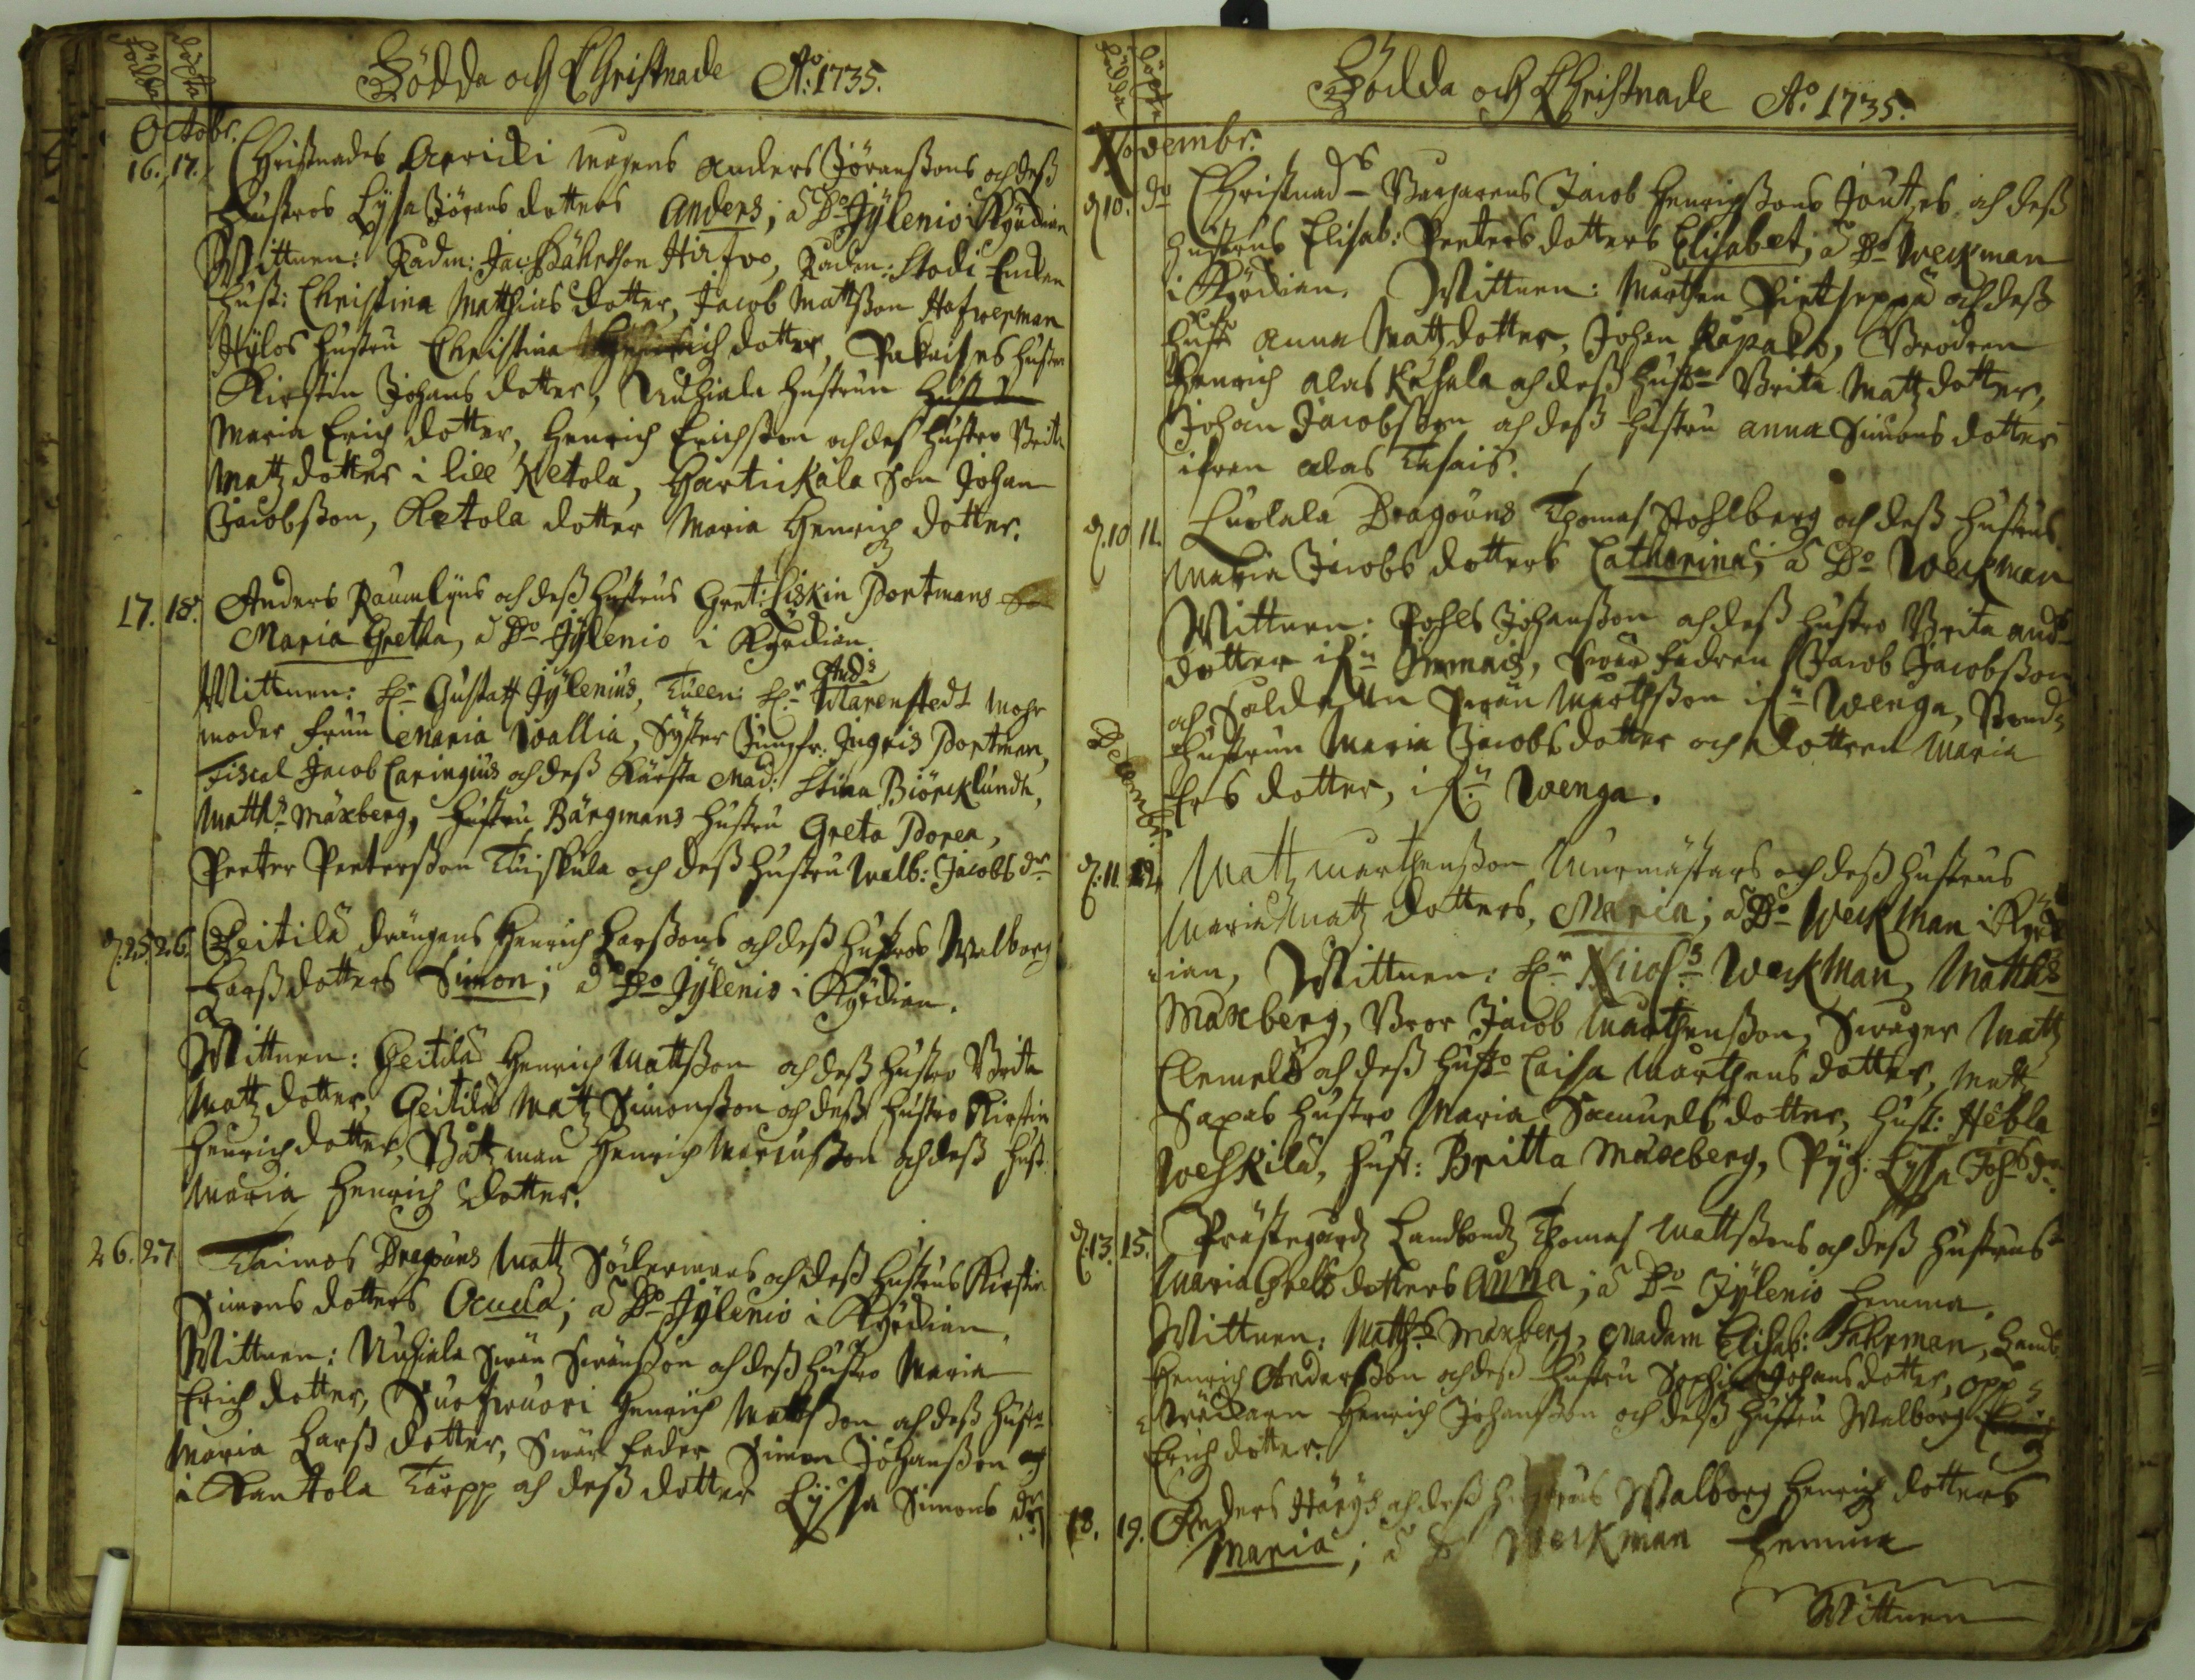 Födda
döptan
Födda och Christnade Ao: 1735.
Octobr.
16. 17. Christnades Anders Jöranssons och dess
Hustros Lysa Jörans dotters Anders; a Do Jÿlenio i Kyrkian
Wittnen: Hirfvo, Enden
Hust: Christina Matthias dotter, Jacob Mattsson
Hustru Christina Henrich dotter, Hustru
Kirstin Johans dotter, Hustrun
Maria Erich dotter, Henrich Erichsson och dess Hustro Brita
Matz dotter i lill Ketola, Hartickala Son Johan
Jacobsson, Ketola dotter Maria Henrich dotter.
17. 18. Anders Raumlÿns och dess Hustrus Gret: Liskin Portmans
Maria Gretha, a Do Jÿlenio i Kyrkian.
Wittnen: Hr Gustaff Jÿlenius, Tulln: Hr And: Marenstedt Mohr
moder Fruu Maria Wallia, Syster Jungfr. Ingris Portman,
Fiscal Jacob Caringius och dess Kärsta Mad: Stina Biörcklundh,
Matths Maxberg, Hustru Bärgmans Hustru Greta Dorea,
Peeter Peetersson Tuiskula och dess Hustru Walb: Jacobs dr
d. 25. 26. Heitilä drängens Henrich Larssons och dess Hustros Walborg
Larss dotters Simon; a Do Jÿlenio i Kyrkian.
Wittnen: Heitilä Henrich Mattsson och dess Hustro Brita
Matz dotter, Heitilä Matz Simonsson och dess Hustro Kirstin
Henrich dotter, Båtzman Henrich Marcusson och dess Hust.
Maria Henrich dotter.
26. 27 Taimos Dragouns Matz Södermans och dess Hustrus Kirstin
Simons dotters a Do Jÿlenio i Kyrkian.
Wittnen: Uuhiala Swän Swänsson och dess Hustro Maria
Erich dotter, Suofwuori Henrich Mattsson och dess Hustro
Maria Larss dotter, Swär fader Simon Johansson
i Kantola Torpp och dess dotter Lÿsa Simons dr
Födda
döpte
Födda och Christnade Ao. 1735.
Novembr.
d. 10. do Christnades Jacob Henrichssons och dess
Hustrus Elisab: Peeters dotters Elisabet, a Do Weckman
i Kyrkian. Wittnen: Marthen och dess
Hustr Anna Matz dotter, Johan Rapako, Brodren
Henrich alas Kuhala och dess Hustro Brita Matz dotter,
Johan Jacobsson och dess Hustru Anna Simons dotter
ifrån alas
d. 10 11. Luolala Dragouns Thomas Stohlberg och dess Hustrus
Maria Jacobs dotters Catharina; a Do Weckman
Wittnen: Pohls Johansson och dess Hustro Brita And:
dotter ifn Immais, Swär fadren Jacob Jacobsson
och Soldaten Swän Marthsson ifn Wenga, Bond:
Hustrun Maria Jacobs dotter och dottren Maria
Ers dotter, ifn Wenga.
Decembr.
d. 11. 12. Matz Marthensson Murmästars och dess Hustrus
Maria Matz dotters, Maria; a Do Weckman i Kyrk
ian, Wittnen: Hr Nicols Weckman, Matths
Maxberg, Bror Jacob Marthensson, Swåger Matz
Clemels och dess Husto Caisa Marthens dotter, Matz
Saxas Hustro Maria Samuels dotter, Hust: Hebla
Weskilä, Hust: Britta Maxberg, Pyg: Lysa Johs dr.
d. 13. 15. Prästegårdz Landbondz Thomas Mattssons och dess Hustrus
Maria Grels dotters Anna; a Do Jÿlenio hemma.
Wittnen: Matths Maxberg, Madam Elisab: Fahrman, Landb:
Henrich Andersson och dess Hustru Sophia Johans dotter, opp
Henrich Johansson och dess Hustru Walborg
Erich dotter.
18. 19. Anders och dess Hustrus Walborg Henrich dotters
Maria; a D Weckman hemma
Wittnen